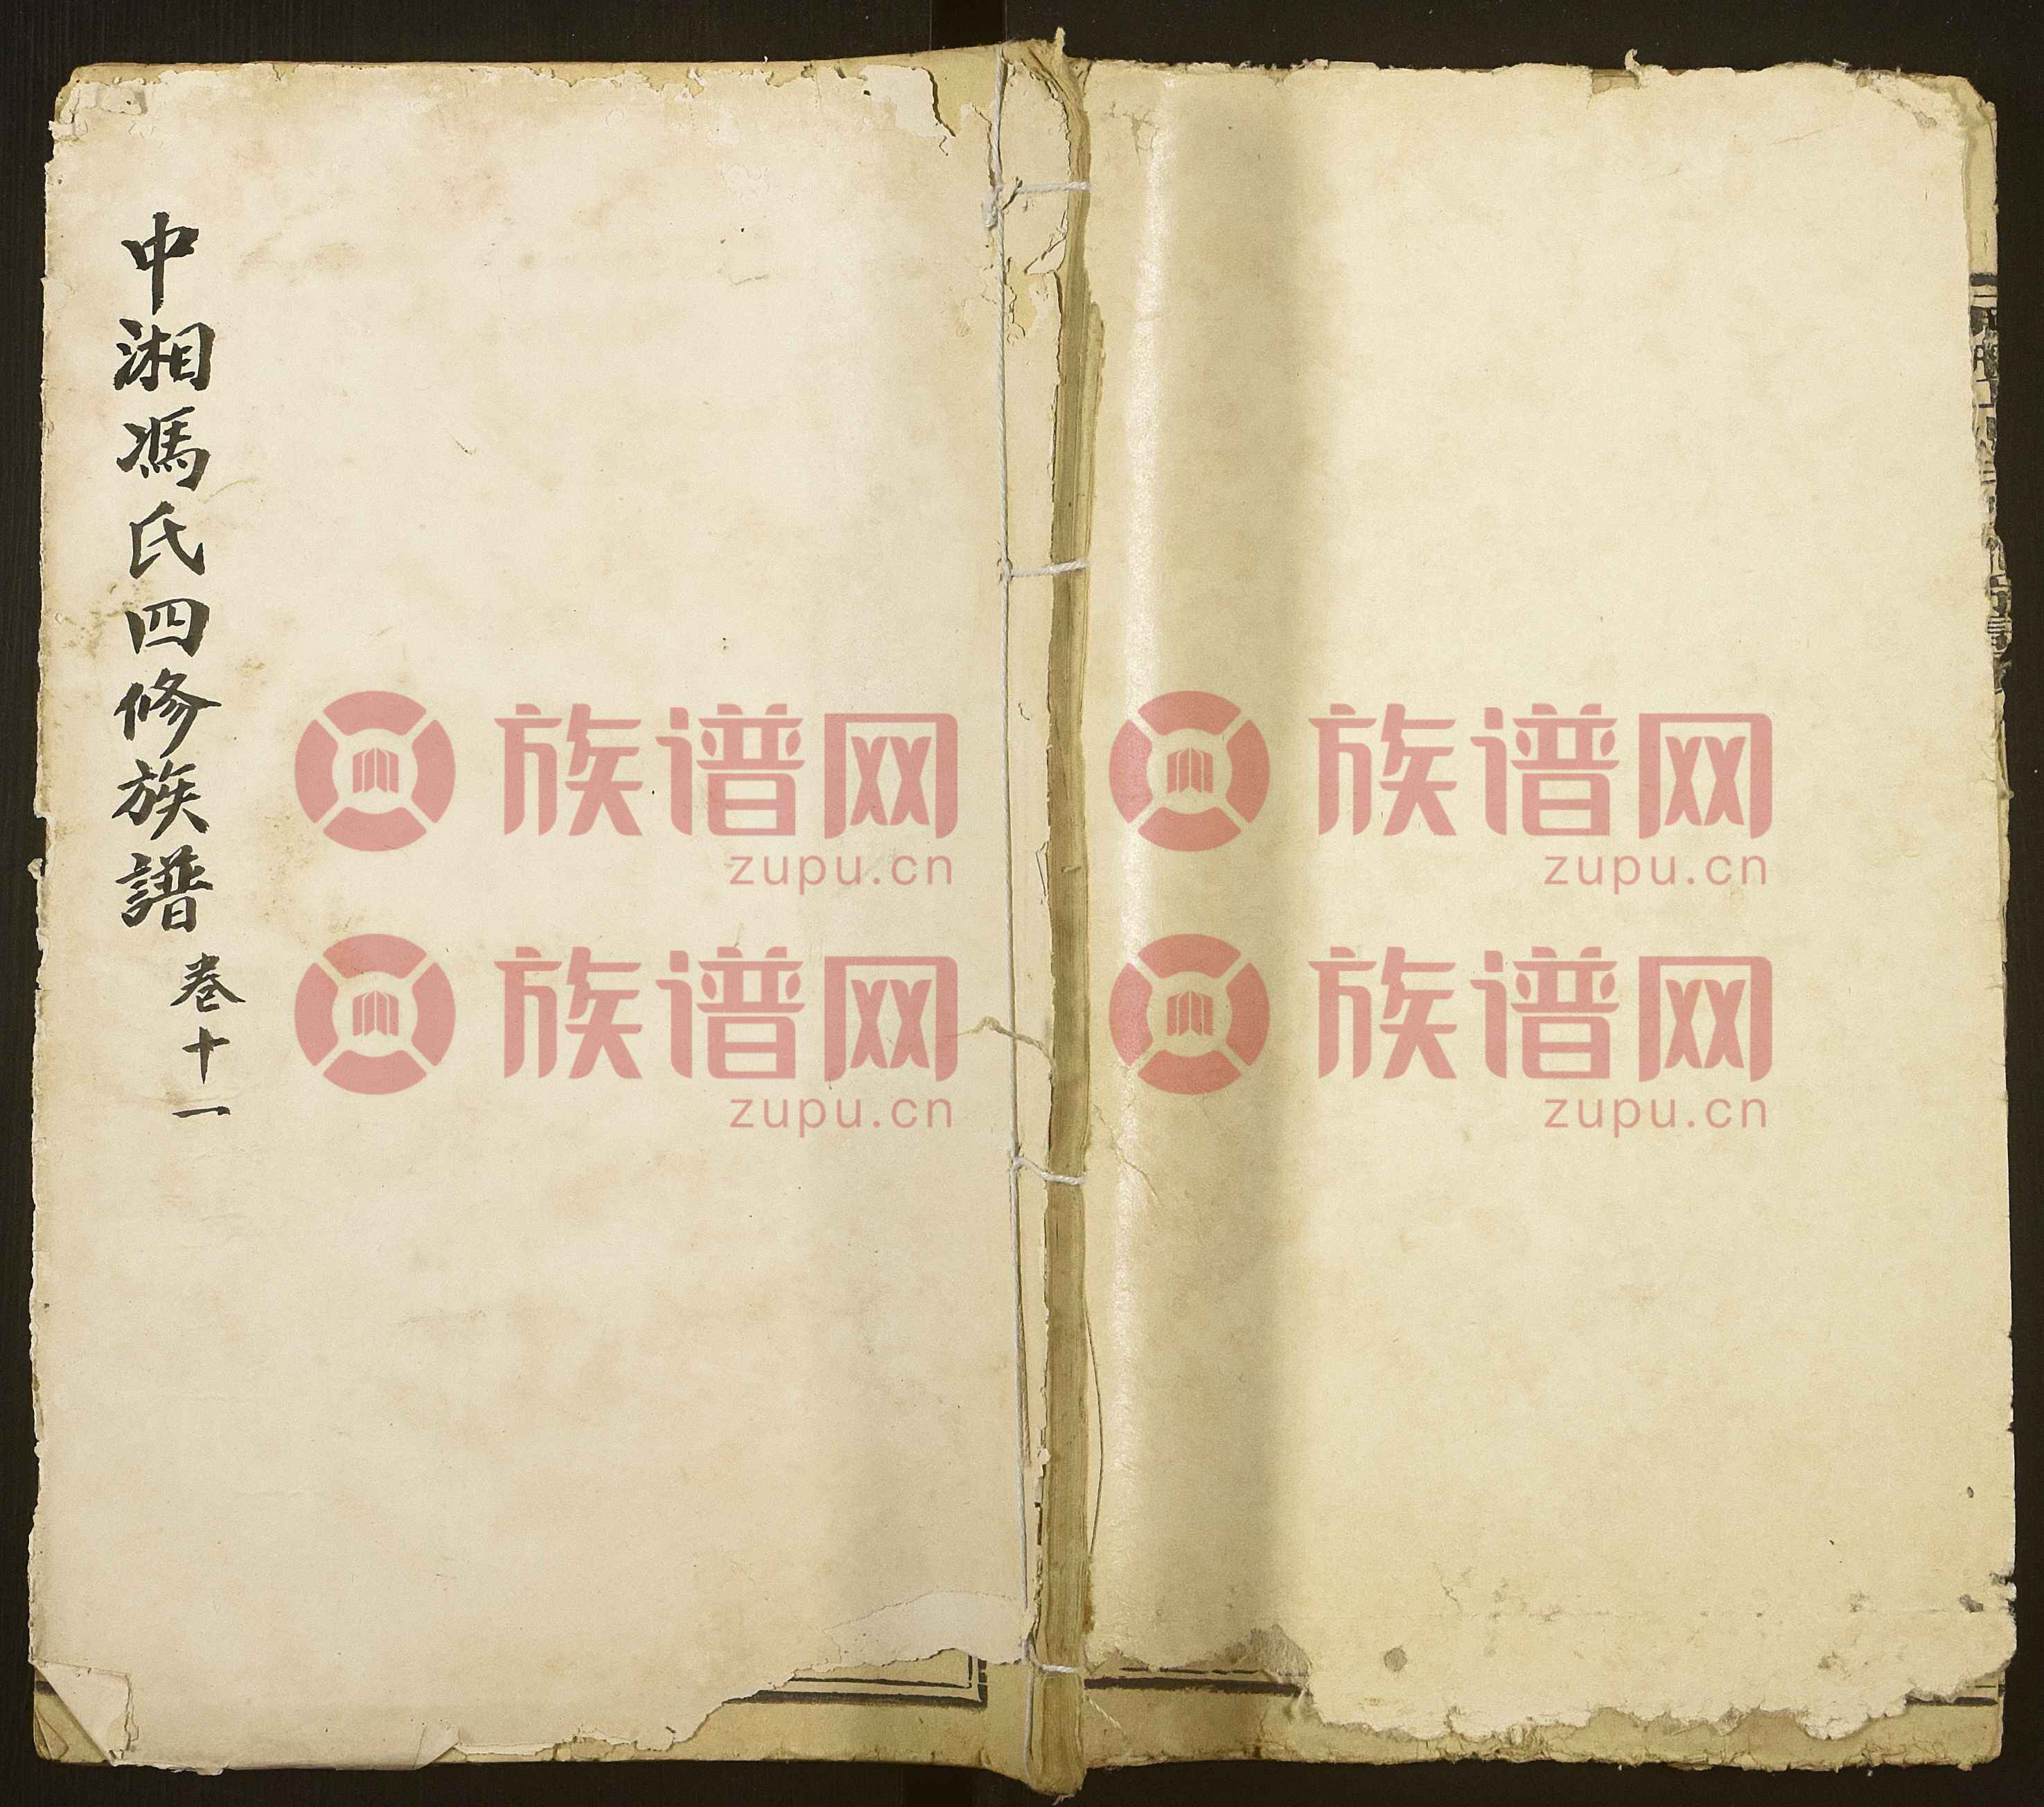 中湘馮氏四修族譜
卷十一
族谱网
zupu.cn
族谱网
zupu.cn
族谱网
zupu.cn
族谱网
zupu.cn